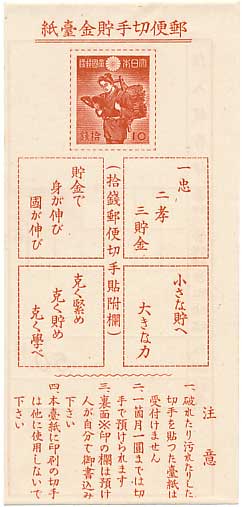 郵便切手貯金臺紙
大日本帝國郵便
拾錢
10
一忠
二孝
三貯金
(拾錢郵便切手貼附欄)
貯金で
身が伸び
國が伸び
小さな貯へ
大きな力
克く緊め
克く貯め
克く學べ
注意
一、破れたり汚れたりした
切手を貼つた臺紙は
受付けません
二、一箇月一圓までは切
手で預けられます
三、裏面※印の欄は預け
人が自分で御書込み
下さい
四、本臺紙に印刷の切手
は他に使用しないで
下さい